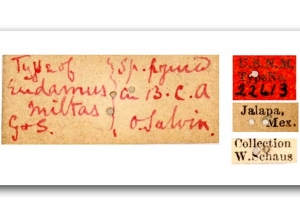 Type of
Eudamus
miltas
G & S.
Sp. figured
in B. C. A
O. Salvin.
U.S.N.M.
Type No.
22613
Jalapa,
Mex.
Collection
W. Schaus